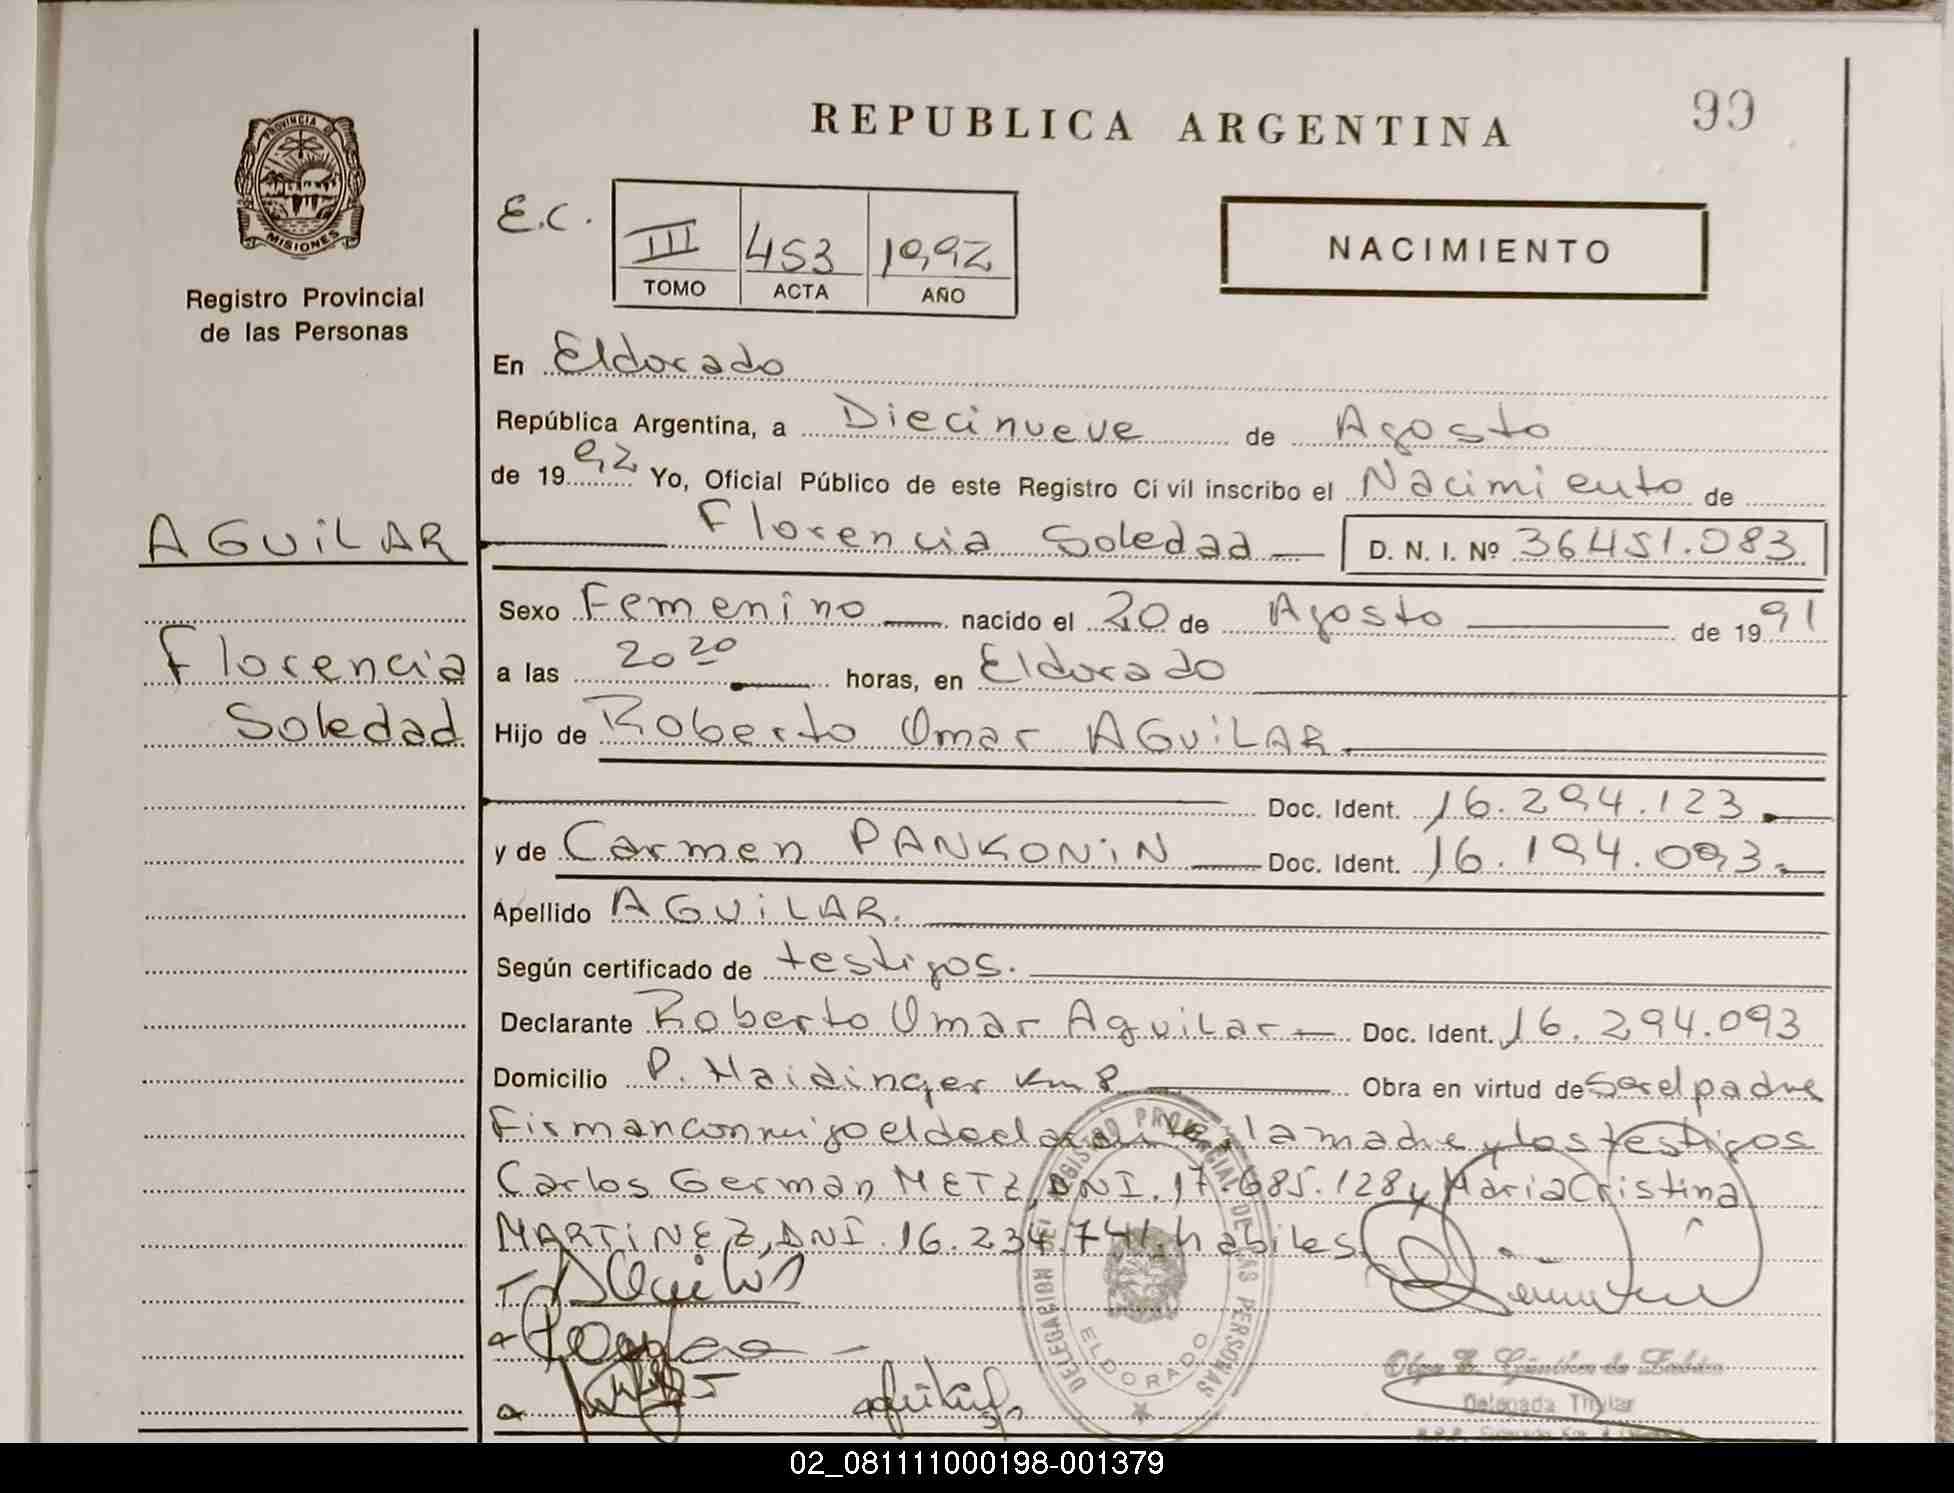 REPUBLICA ARGENTINA
99
PROVINCIA DE
MISIONES
Registro Provincial
de las Personas
E.C.
III 453 1992
TOMO ACTA AÑO
NACIMIENTO
En Eldorado
República Argentina, a Diecinueve de Agosto
de 1992 Yo, Oficial Público de este Registro Civil inscribo el Nacimiento de
AGUILAR
Florencia Soledad D. N. I. Nº 36451.083
Sexo Femenino nacido el 20 de Agosto de 1991
Florencia
a las 20 20 horas, en Eldorado
Soledad
Hijo de Roberto Omar AGUILAR
Doc. Ident. 16.294.123
y de Carmen PANKONIN Doc. Ident. 16.194.093
Apellido AGUILAR.
Según certificado de testigos.
Declarante Roberto Omar Aguilar Doc. Ident. 16.294.093
Domicilio P. Haidinger Km 8 Obra en virtud de ser el padre
Firman conmigo el declarante, la madre y los testigos
Carlos German METZ, DNI. 17.685.128 y Maria Cristina
MARTINEZ, DNI. 16.234.741. habiles
DELEGACION DEL REGISTRO PROVINCIAL DE LAS PERSONAS
ELDORADO
Delegada Titular
02_081111000198-001379